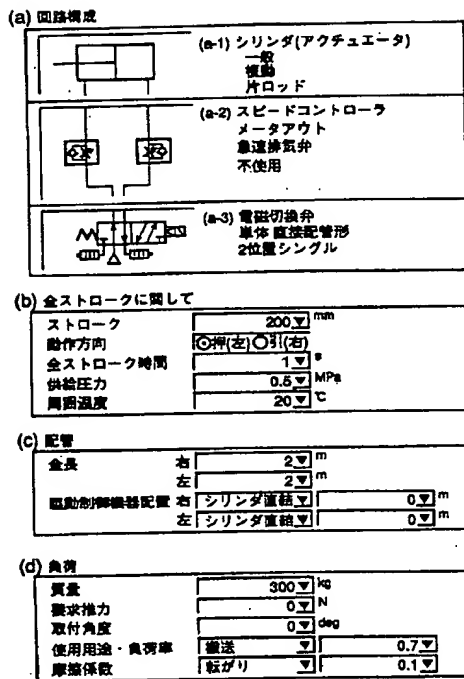 (a) 回路構成
(a-1) シリンダ(アクチュエータ)
一般
複動
片ロッド
(a-2) スピードコントローラ
メータアウト
急速排気弁
不使用
(a-3) 電磁切換弁
単体 直接配管形
2位置シングル
(b) 全ストロークに関して
ストローク 200 mm
動作方向 押(左) 引(右)
全ストローク時間 1 s
供給圧力 0.5 MPa
周囲温度 20 ℃
(c) 配管
全長 右 2 m
左 2 m
駆動制御機器配置 右 シリンダ直結 0 m
左 シリンダ直結 0 m
(d) 負荷
質量 300 kg
要求推力 0 N
取付角度 0 deg
使用用途・負荷率 搬送 0.7
摩擦係数 転がり 0.1